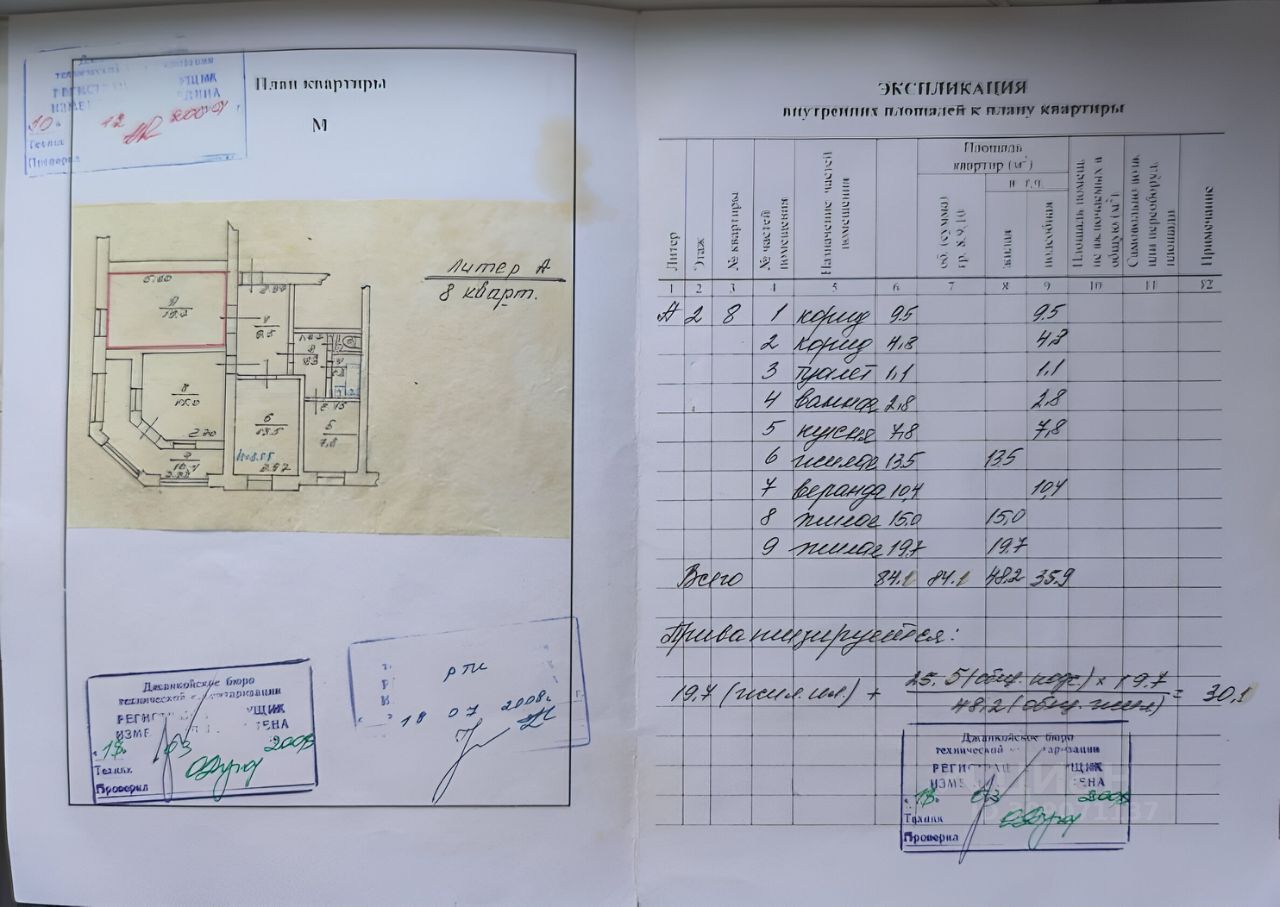 План квартиры
М
Литер А
8 кварт.
5.00
9
19.7
1
9.5
8
15.0
2.70
6
13.5
h=3.55
2.97
5
7.8
7
10.4
Джанкойское бюро
технической
РЕГИСТ
ИЗМЕ
"18" 03 2008
Техник
Проверил
РТИ
18 07 2008г.
10 12 2007
Техник
Проверил
ЭКСПЛИКАЦИЯ
внутренних площадей к плану квартиры
Литер
Этаж
№ квартиры
№ частей помещения
Назначение частей помещения
Площадь квартир (м²)
об. (сумма гр. 8,9,10
в т.ч.
жилая
подсобная
Площадь помещ. не включаемых в общую (м²)
Самовольно возв. или переоборуд. площади
Примечание
1 2 3 4 5 6 7 8 9 10 11 12
А 2 8 1 корид 9.5 9.5
2 корид 4,8 4.8
3 туалет 1,1 1,1
4 ванная 2,8 2.8
5 кухня 7,8 7,8
6 жилая 13.5 13.5
7 веранда 10,4 10,4
8 жилое 15,0 15,0
9 жилое 19.7 19.7
Всего 84.1 84.1 48.2 35.9
Приватизируется:
19.7 (жил. пл.) + 25.5 (общ. подс) × 19.7
48,2 (общ. жил) = 30,1
Джанкойское бюро
технической
РЕГИСТ
ИЗМЕ
"18" 03 2008
Техник
Проверил